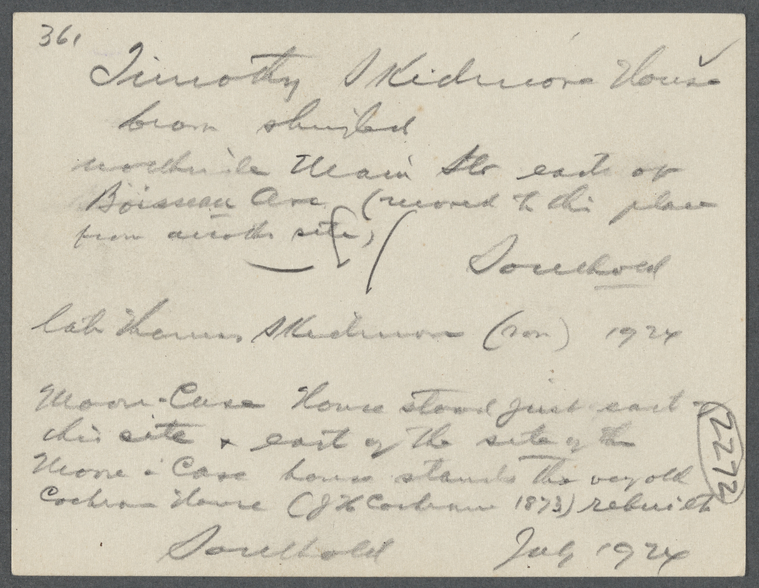 361
Timothy Skidmore House
brown shingled
northside Main Str east of
Boisseau Ave (moved to this place
from another site)
Southold
late Thomas Skidmore (son) 1924
Moore-Case House stood just east of
this site & east of the site of the
Moore-Case house stands the very old
Cochran House (J H Cochran 1873) rebuilt
2272
Southold July 1924